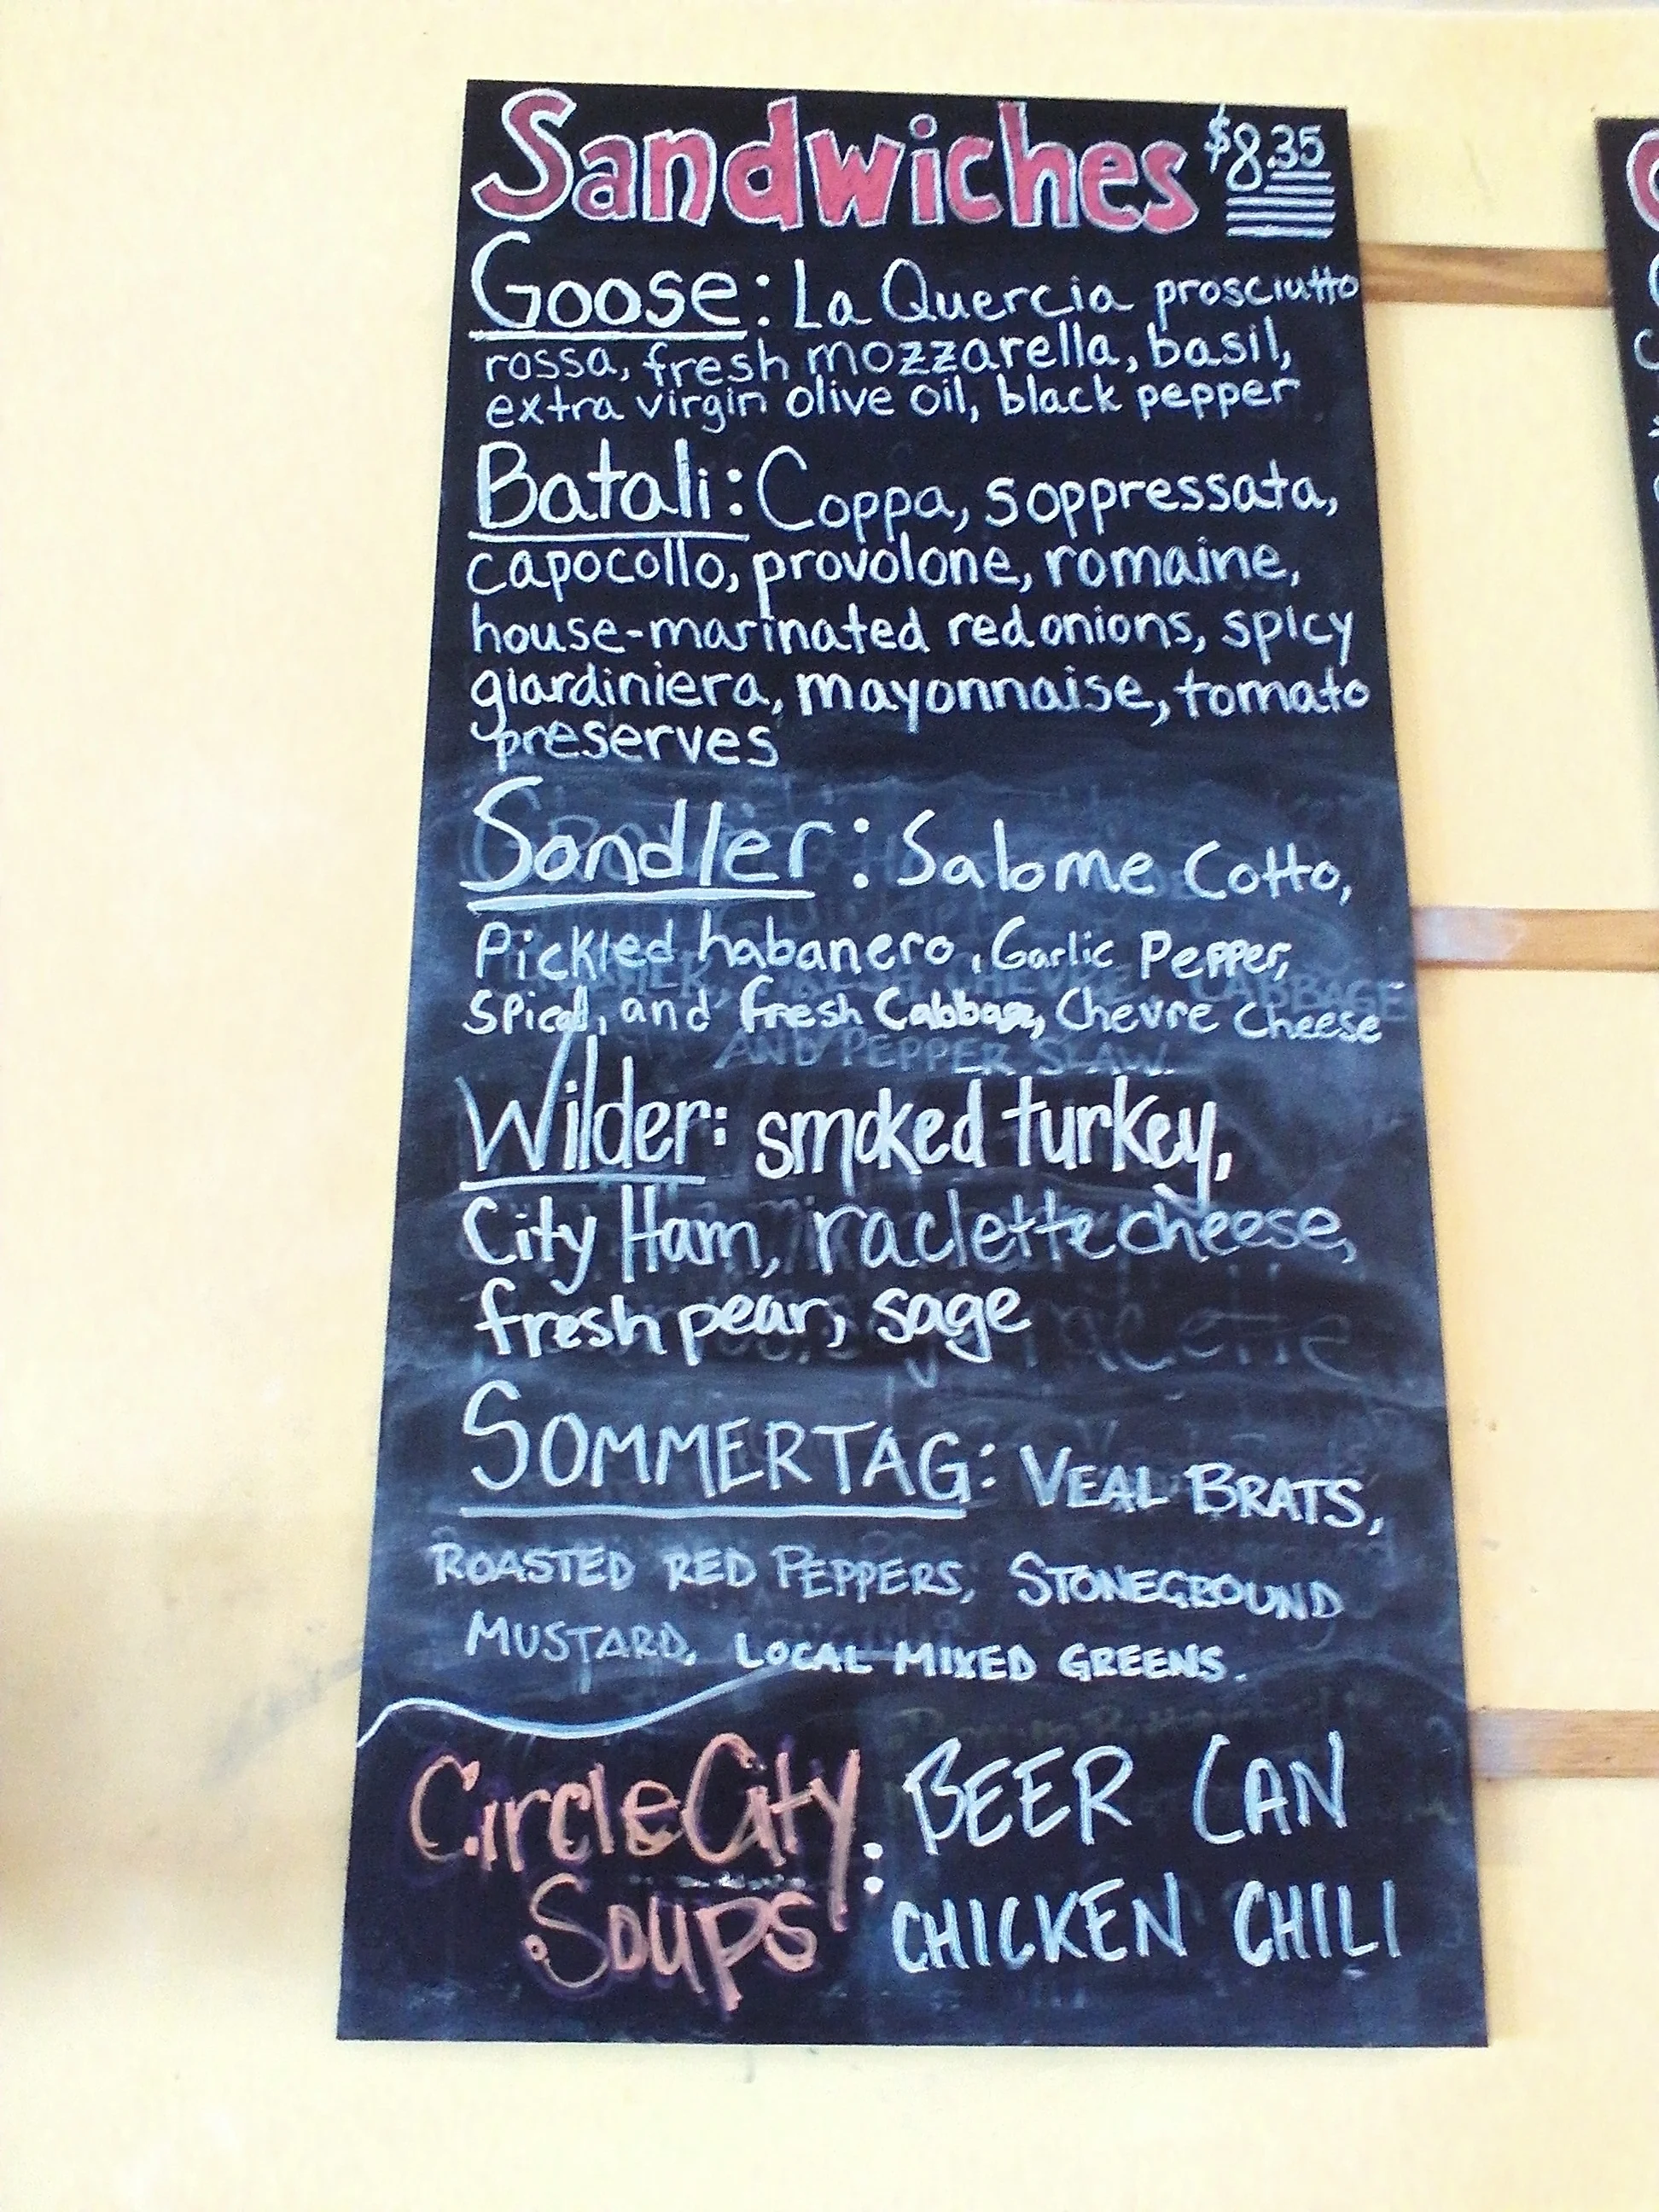 Sandwiches $8.35
Goose: La Quercia prosciutto
rossa, fresh mozzarella, basil,
extra virgin olive oil, black pepper
Batali: Coppa, soppressata,
capocollo, provolone, romaine,
house-marinated red onions, spicy
giardiniera, mayonnaise, tomato
preserves
Sandler: Salame Cotto,
Pickled habanero, Garlic Pepper,
spiced, and fresh Cabbage, Chevre Cheese
AND PEPPER SLAW.
Wilder: smoked turkey,
City Ham, raclette cheese,
fresh pear, sage
SOMMERTAG: VEAL BRATS,
ROASTED RED PEPPERS, STONEGROUND
MUSTARD, LOCAL MIXED GREENS.
Circle City Soups: BEER CAN
CHICKEN CHILI